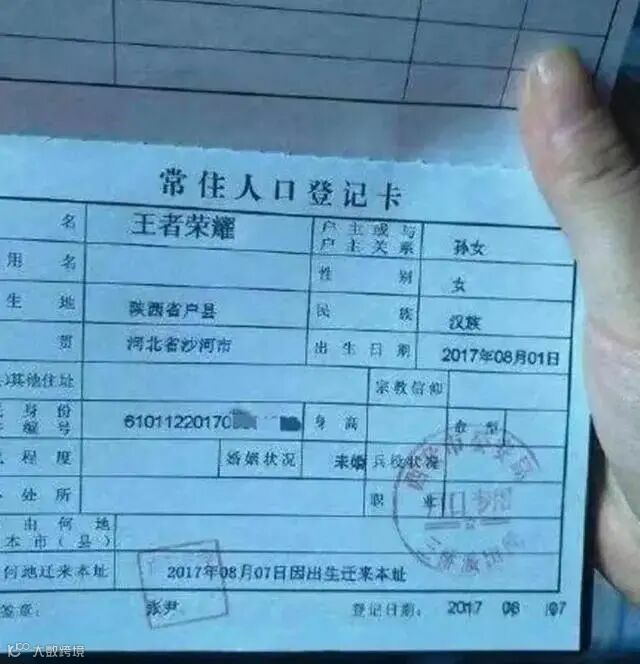 常住人口登记卡
名 王者荣耀 户主或与户主关系 孙女
用名 性别 女
生地 陕西省户县 民族 汉族
贯 河北省沙河市 出生日期 2017年08月01日
其他住址 宗教信仰
身份编号 61011220170 身高 血型
程度 婚姻状况 未婚 兵役状况
处所 职业
由何地
本市(县)
何地迁来本址 2017年08月07日因出生迁来本址
签章: 张尹 登记日期: 2017 08 07
大数跨境